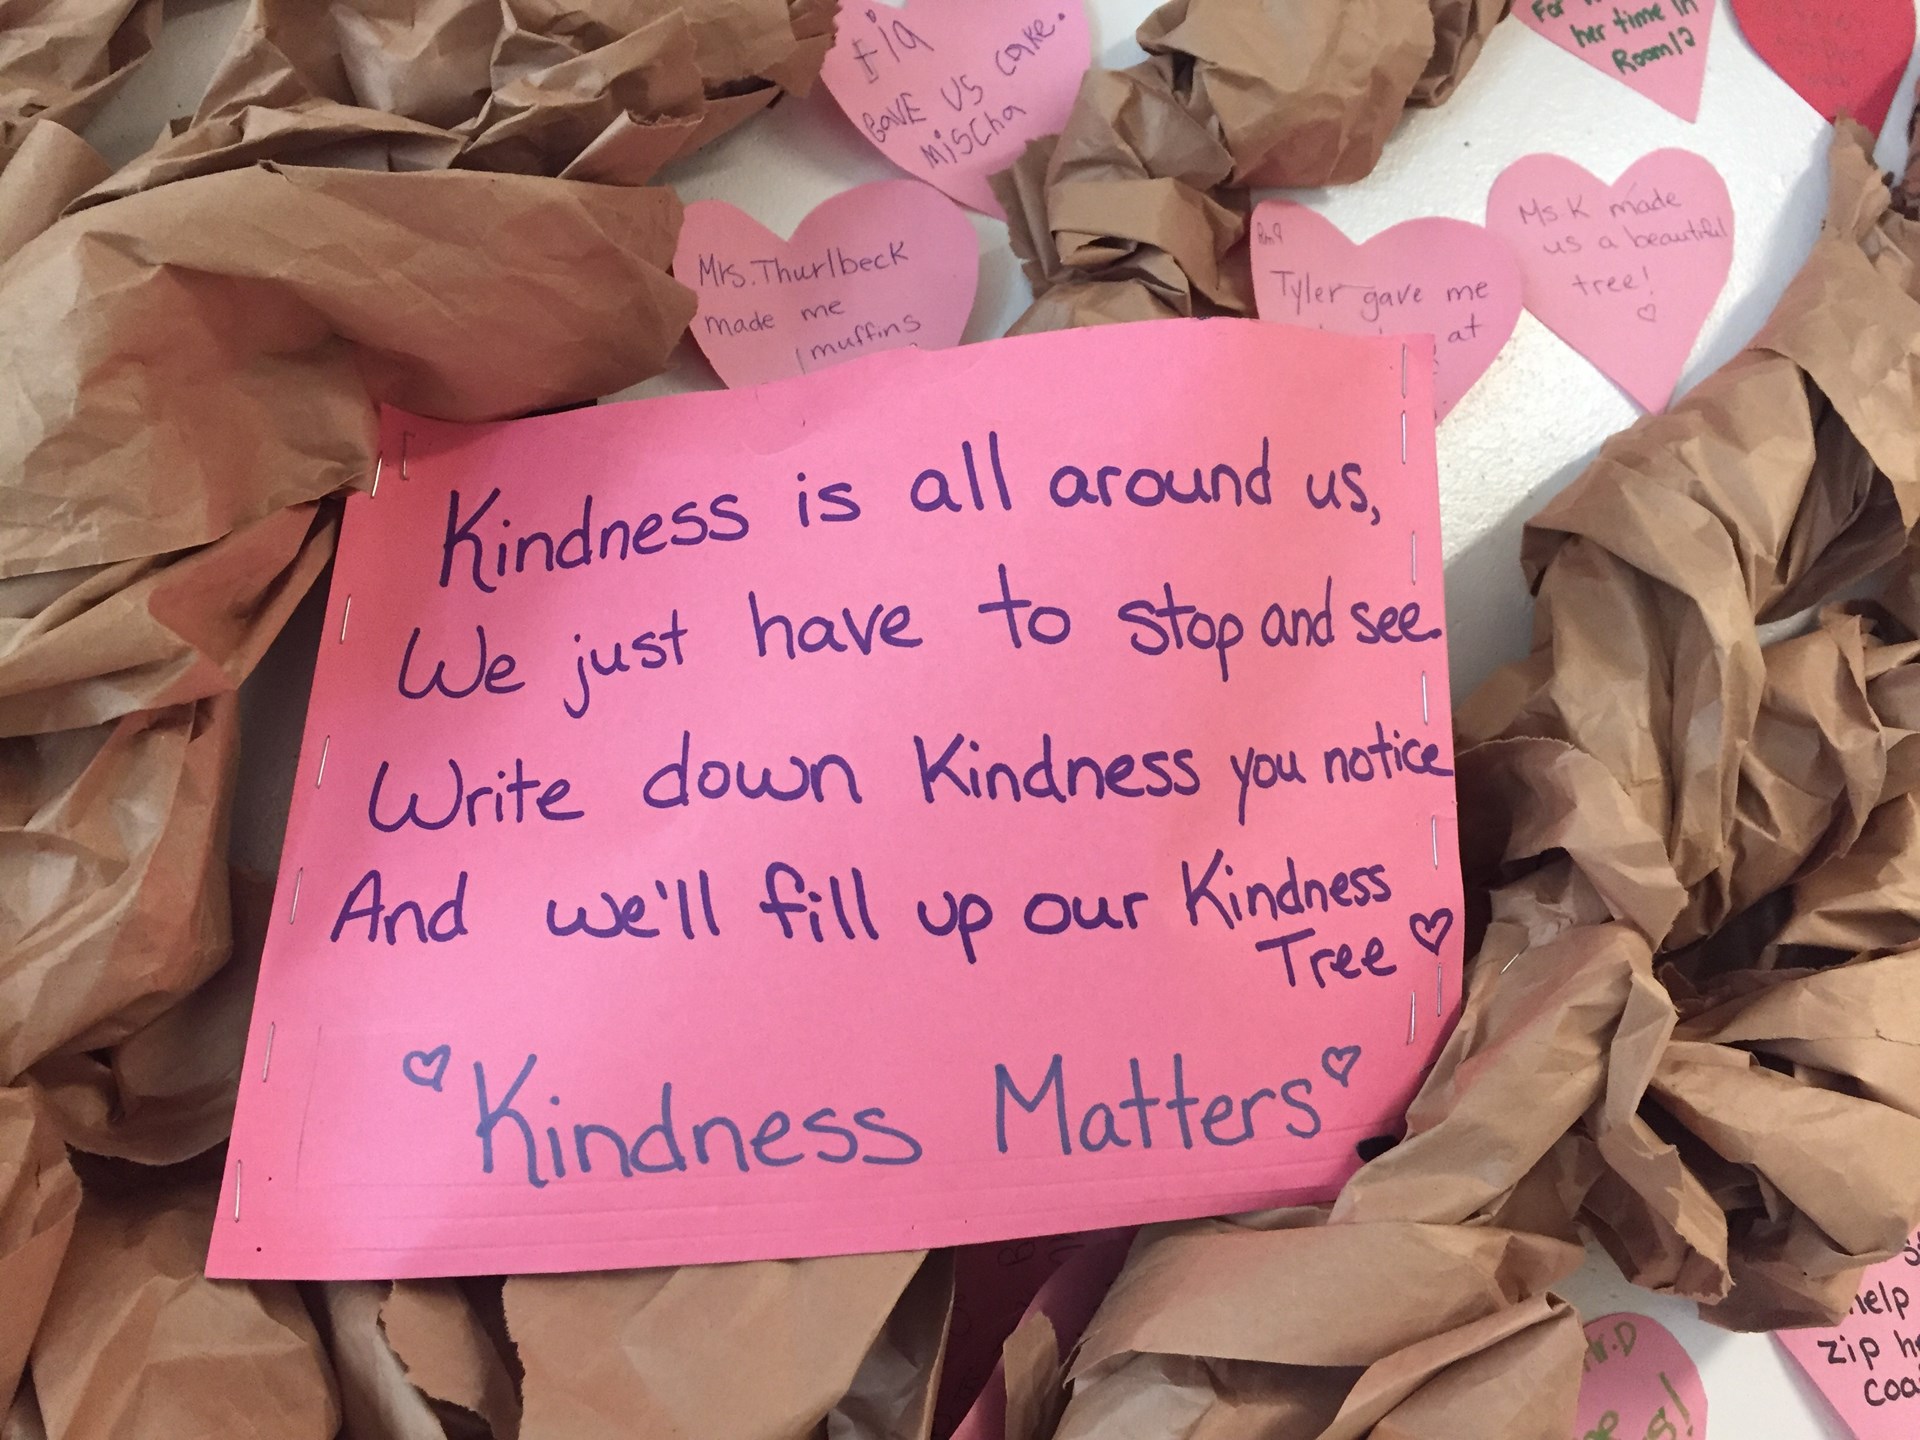 tia
GAVE US cake.
Mischa
her time in
Room 12
Mrs. Thurlbeck
made me
muffins
Rm 9
Tyler gave me
at
Ms. K made
us a beautiful
tree!
Kindness is all around us,
We just have to stop and see.
Write down Kindness you notice
And we'll fill up our Kindness
Tree
Kindness Matters
help
zip